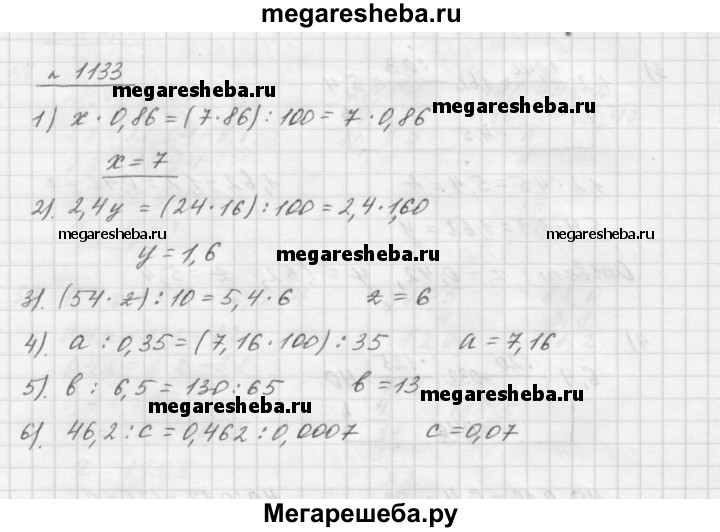 megaresheba.ru
№ 1133
megaresheba.ru
megaresheba.ru
1) x · 0,86 = (7 · 86) : 100 = 7 · 0,86
x = 7
2). 2,4y = (24 · 16) : 100 = 2,4 · 1,60
megaresheba.ru
megaresheba.ru
megaresheba.ru
y = 1,6
3). (54 · z) : 10 = 5,4 · 6 z = 6
4). a : 0,35 = (7,16 · 100) : 35 a = 7,16
5). b : 6,5 = 130 : 65 b = 13
megaresheba.ru
megaresheba.ru
6). 46,2 : c = 0,462 : 0,0007 c = 0,07
Мегарешеба.ру